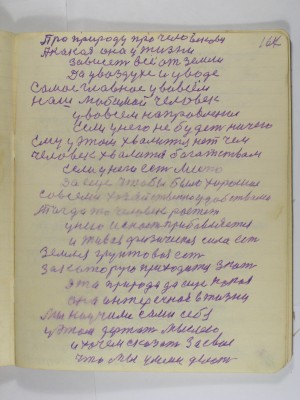 Про природу про человекови 164
Какая она у жизни
Зависит всё от земли
Да у воздухе и у воде
Самое главное у всём
Наш любимый человек
у всём направлении
Если у него не будет ничего
Ему у этом хвалится нет чем
Человек хвалится богатством
Если у него есть место
Да еще чтобы было хорошее
совсеми удобствами
Тогда то человек растет
у него прибавляется
и такая физическая сила есть
Земля грунтовая есть
За которую приходится знать
Эта природа да еще какая
она интересная в жизни
Мы научили сами себя
у этом держать мыслею
и хочем сказать за свое
что мы умеем делать